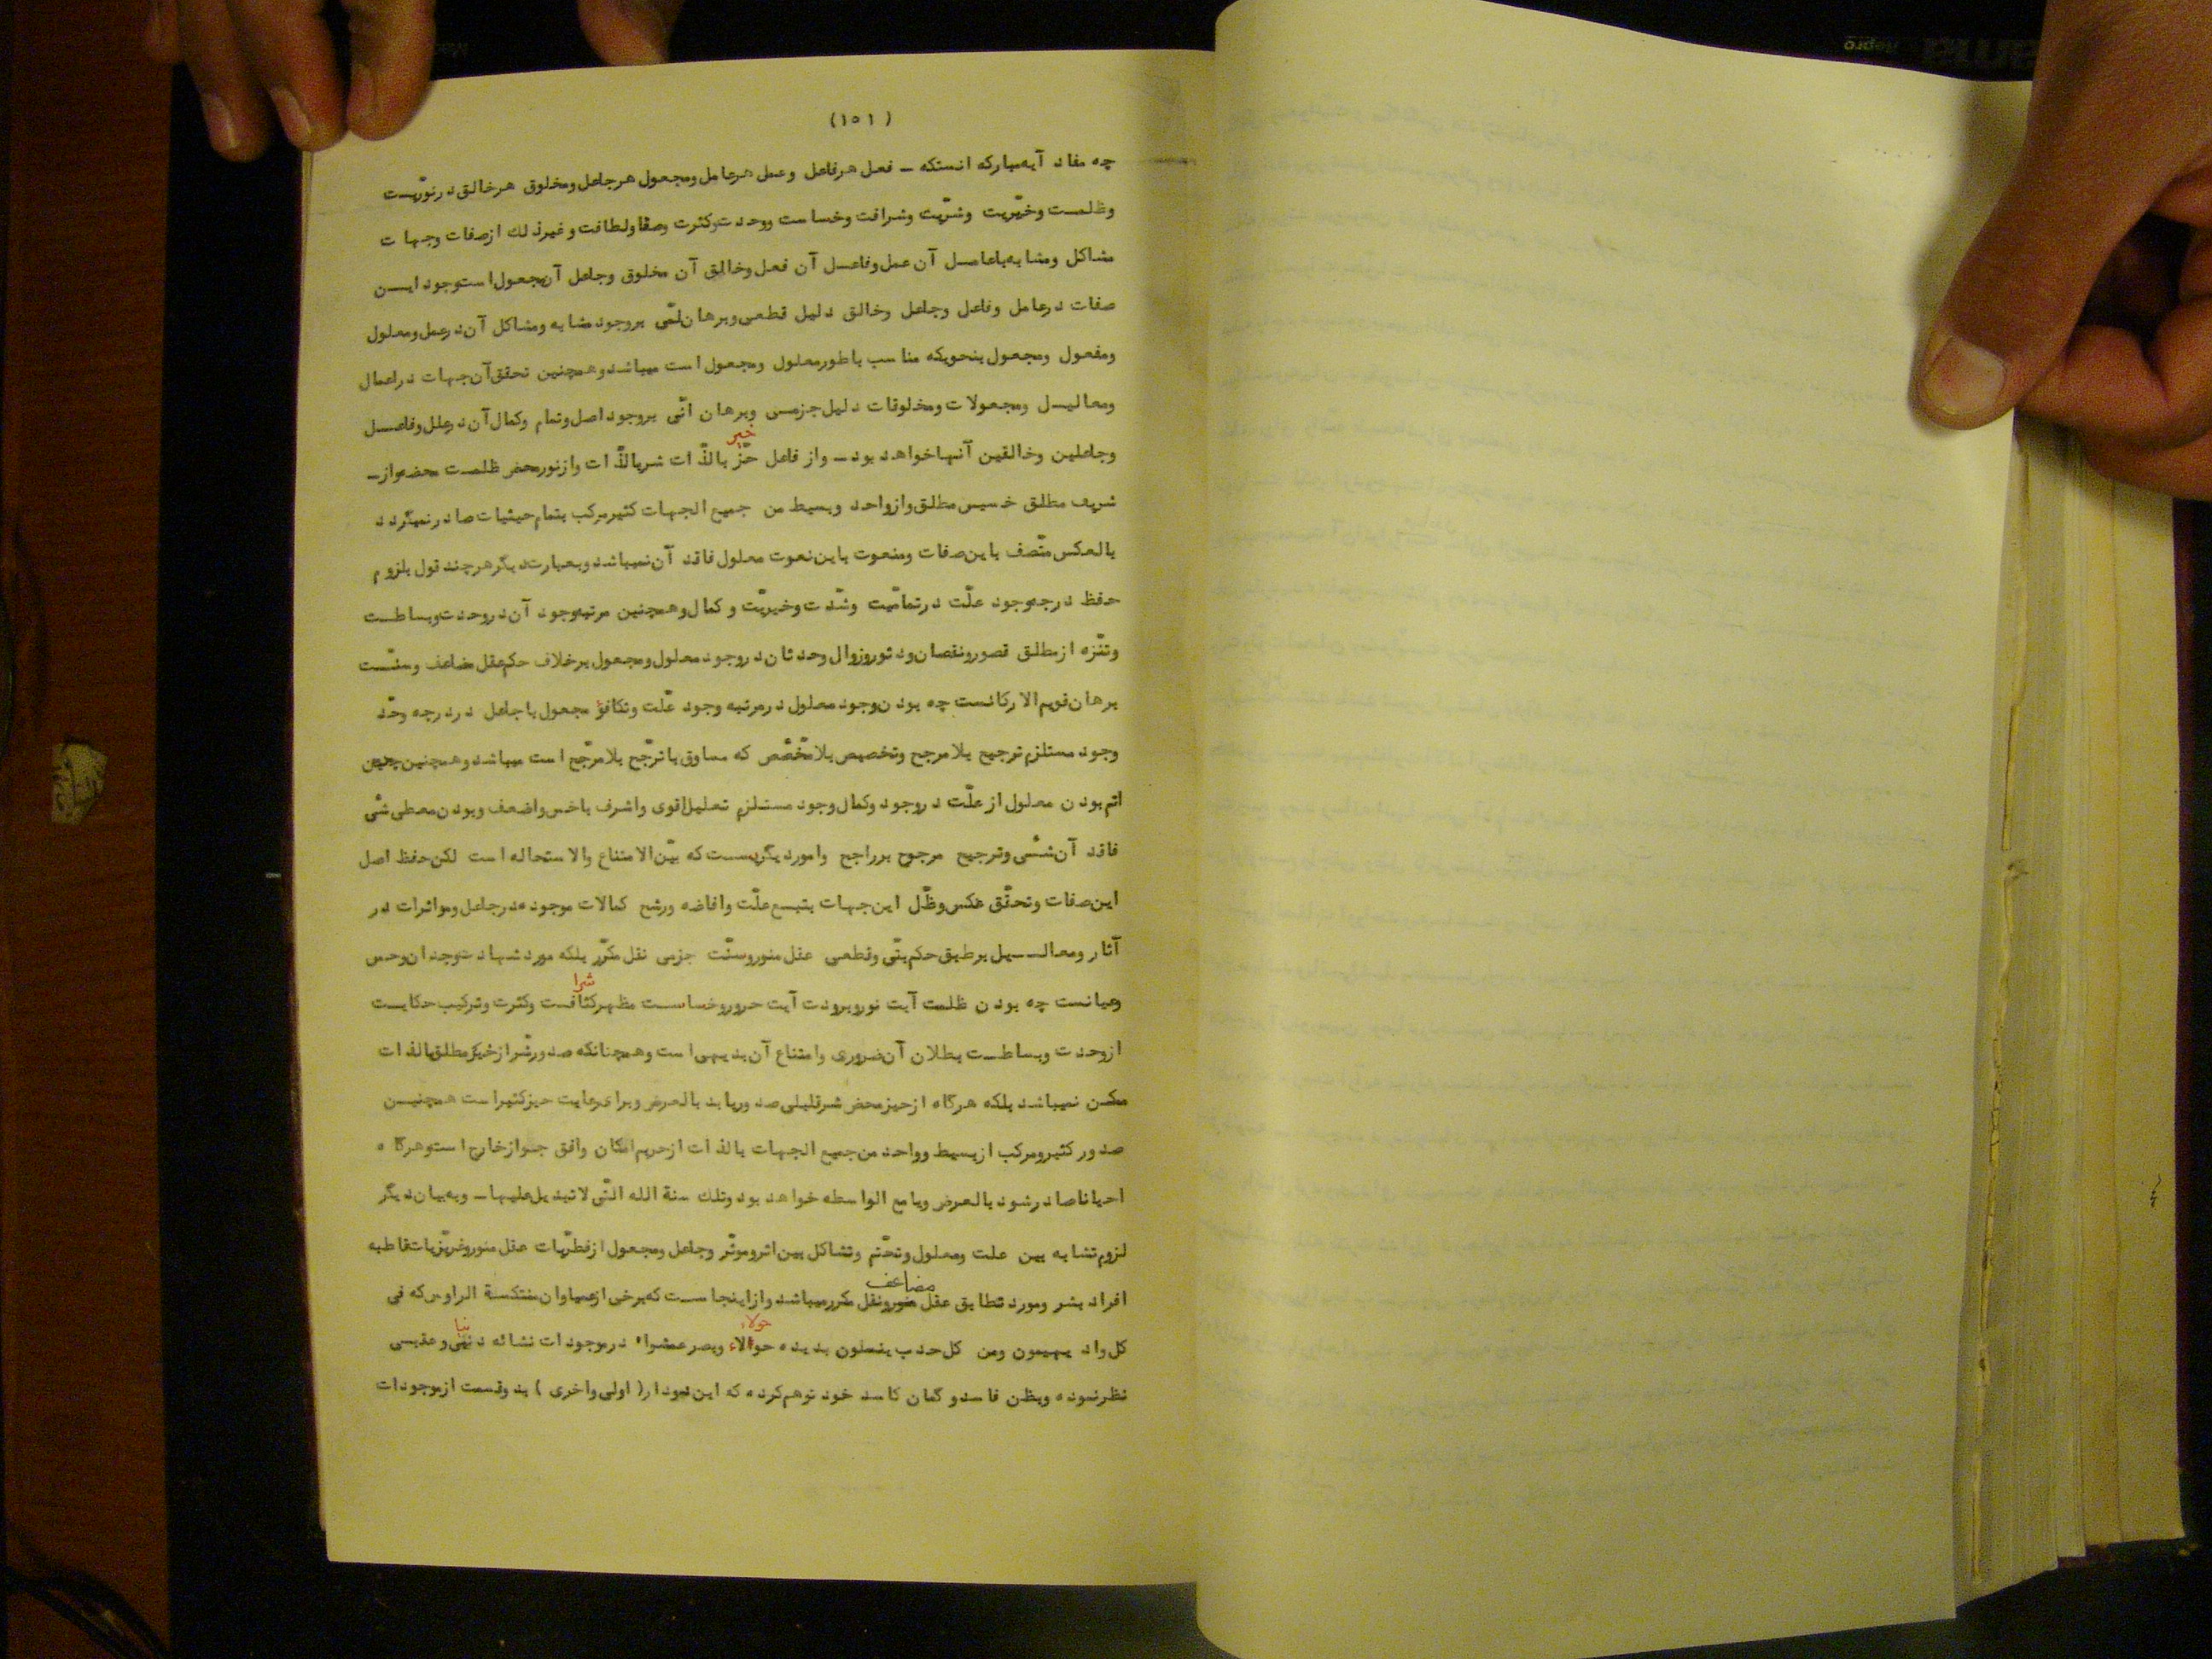 (١٥١)
چه مفاد آیه‌مبارکه انستکه – فعل هرفاعل وعمل هرعامل ومجعول هرجاعل ومخلوق هرخالق درنوّریست
وظلمست وخیّریت وشرّیت وشرافت وخساست ووحدت وکثرت وصفا ولطافت وغیرذلك ازصفات وجهات
مشاکل ومشابه باعامل آن عمل وفاعل آن فعل وخالق آن مخلوق وجاعل آن مجعول است وجود ایسن
صفات درعامل وفاعل وجاعل وخالق دلیل قطعی وبرهان لمّی بروجود مشابه ومشاکل آن درعمل ومعلول
ومفعول ومجعول بنحویکه مناسب باطور معلول ومجعول است میباشد وهمچنین تحقق آن جهات دراعمال
ومعالیسل ومجعولات ومخلوقات دلیل جزمسی وبرهان انّی بروجود اصل وتمام وکمال آن درعلل وفاعسل
خیر
وجاعلین وخالقین آنها خواهد بود – واز فاعل حّز بالذّات شر بالذّات وازنور محض ظلمت محضه واز –
شریف مطلق خسیس مطلق وازواحد وبسیط من جمیع الجهات کثیر مرکب بتمام حیثیات صادر نمیگردد
بالعکس متّصف باین صفات ومنعوت باین نعوت معلول فاقد آن نمیباشد وبعبارت دیگر هرچند قول بلزوم
حفظ درجه وجود علّت درتمامّیت وشّدت وخیریّت وکمال وهمچنین مرتبه وجود آن دروحدت وبساطت
وتنّزه ازمطلق قصور ونقصان ودثور وزوال وحدثان دروجود معلول ومجعول برخلاف حکم عقل مضاعف وسنّت
برهان قویم الارکانست چه بودن وجود معلول درمرتبه وجود علّت وتکافؤ مجعول باجاعل دردرجه وحّد
وجود مستلزم ترجیح بلامرجح وتخصیص بلامخّصّص که مساوق باترجّح بلامرّجح است میباشد وهمچنین
اتم بودن معلول ازعلّت دروجود وکمال وجود مستلزم تعلیل اقوی واشرف باخس واضعف وبودن معطی شیٔ
فاقد آن شیٔ وترجیح مرجوح برراجح وامور دیگریست که بیّن الامتناع والاستحاله است لکن حفظ اصل
این صفات وتحقّق عکس وظّل این جهات بتبسع علّت وافاضه ورشح کمالات موجوده درجاعل وموٴثرات در
آثار ومعالسیل برطبق حکم بتّی وقطعی عقل منور وسنّت جزمی نقل مکرّر بلکه مورد شهادت وجدان وحس
شرا
وعیانست چه بودن ظلمت آیت نور وبرودت آیت حرور وخساست مظهر کثافت وکثرت وترکیب حکایست
ازوحدت وبساطت بطلان آن ضروری وامتناع آن بدیهی است وهمچنانکه صدور شّر ازخیر مطلق بالذات
مکن نمیباشد بلکه هرگاه ازحیز محض شر قلیلی صدوریابد بالعرض وبرای رعایت حیز کثیر است همچنیسن
صدور کثیر ومرکب ازبسیط وواحد من جمیع الجهات بالذات ازحریم امکان وافق جواز خارج است وهرگاه
احیانا صادر شود بالعرض وبامع الواسطه خواهد بود وتلك سنة الله الّتی لاتبدیل علیها – وبه بیان دیگر
لزوم تشابه بین علت ومعلول وتحّتم وتشاکل بین اثر وموٴثّر وجاعل ومجعول ازفطرّیات عقل منور وغریّزیات قاطبه
مضاعف
افراد بشر ومورد تطابق عقل منور ونقل مکرر میباشد وازاینجاست که برخی ازعمیاوان منتکسة الراوس که فی
حولاء نیا
کل واد یهیمون ومن کل حدب ینسلون بدیده حوالاء وبصر عمشراء درموجودات نشائه دنهی وعقبسی
نظرنموده وبظن فاسد وگمان کاسد خود توهم کرده که این نمودار (اولی واخری) بدوقسمت ازموجودات